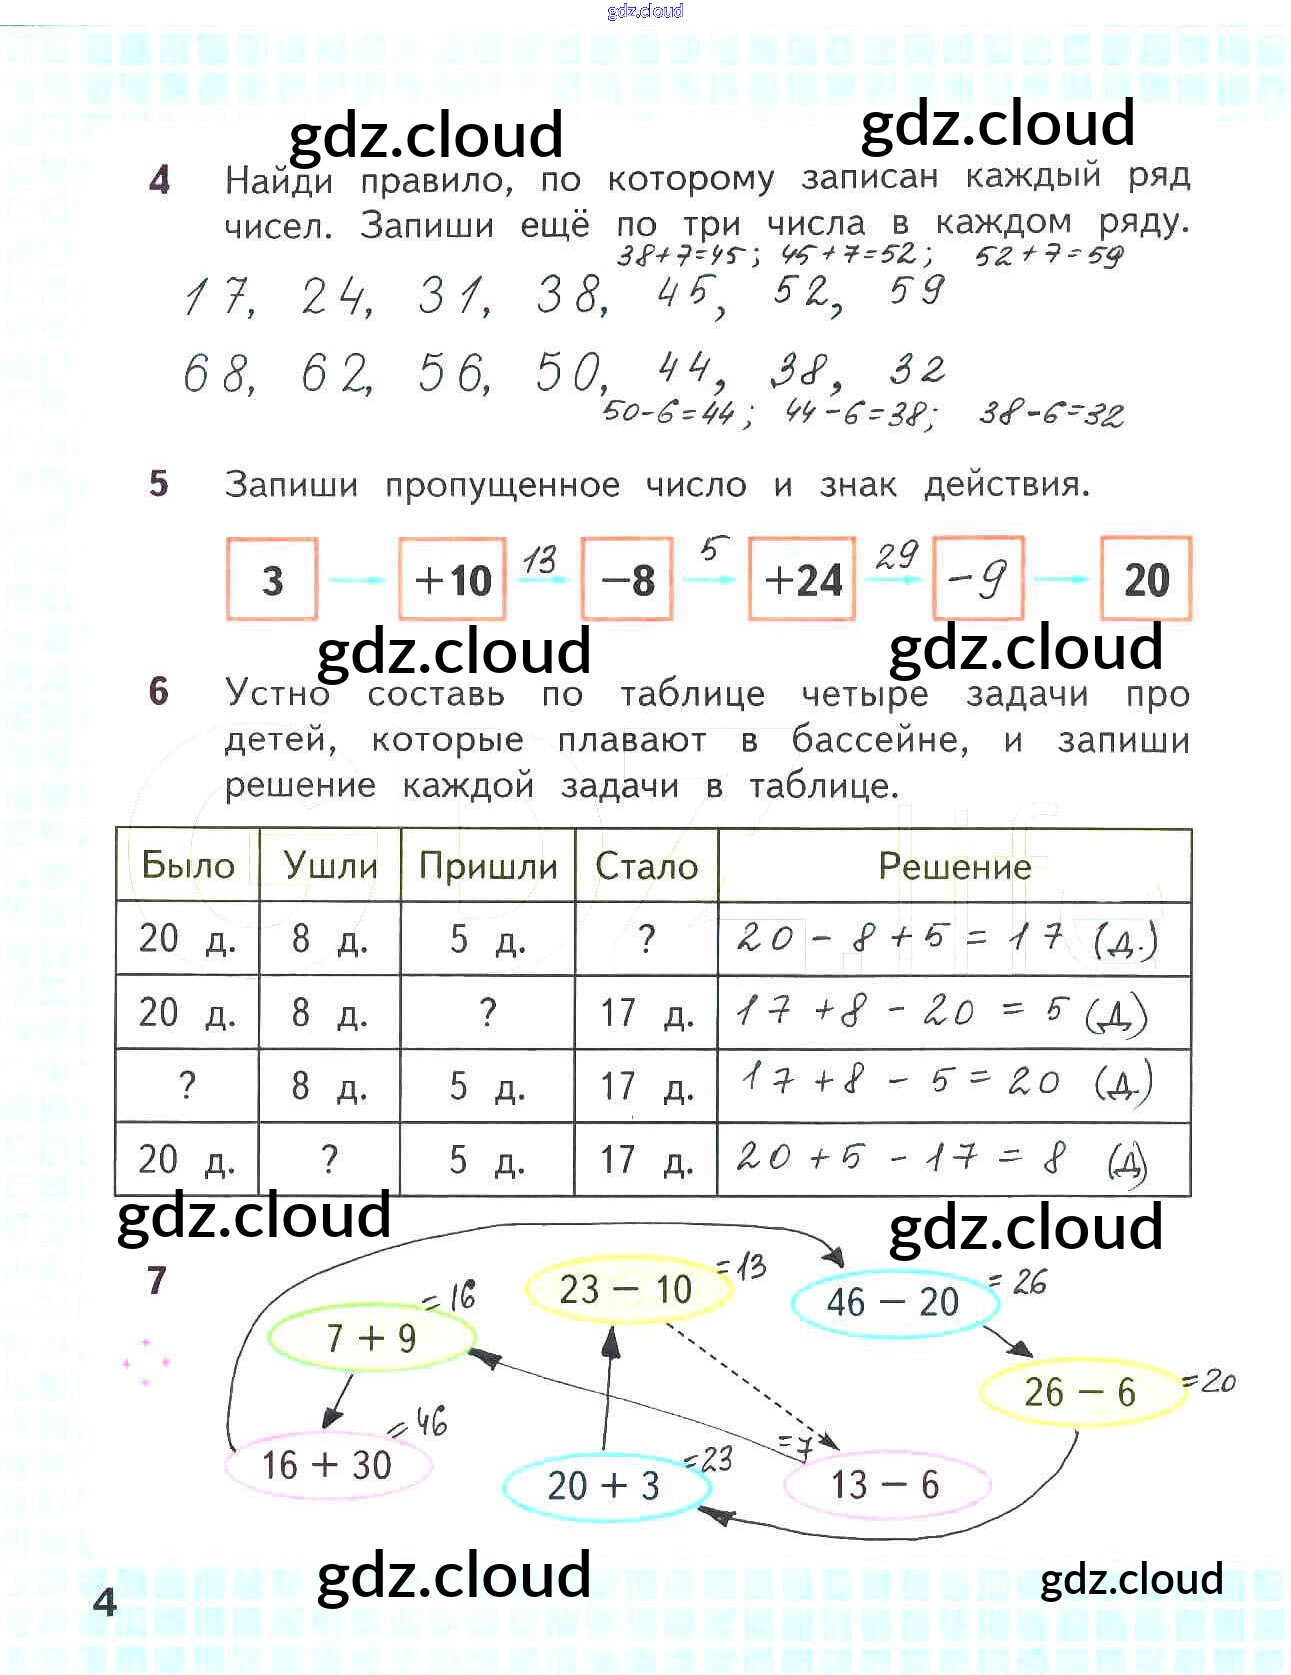 gdz.cloud
gdz.cloud gdz.cloud
4 Найди правило, по которому записан каждый ряд
чисел. Запиши ещё по три числа в каждом ряду.
38+7=45; 45+7=52; 52+7=59
17, 24, 31, 38, 45, 52, 59
68, 62, 56, 50, 44, 38, 32
50-6=44; 44-6=38; 38-6=32
5 Запиши пропущенное число и знак действия.
13 5 29
3 +10 −8 +24 -9 20
gdz.cloud gdz.cloud
6 Устно составь по таблице четыре задачи про
детей, которые плавают в бассейне, и запиши
решение каждой задачи в таблице.
Было Ушли Пришли Стало Решение
20 д. 8 д. 5 д. ? 20 - 8 + 5 = 17 (д.)
20 д. 8 д. ? 17 д. 17 + 8 - 20 = 5 (д)
? 8 д. 5 д. 17 д. 17 + 8 - 5 = 20 (д.)
20 д. ? 5 д. 17 д. 20 + 5 - 17 = 8 (д)
gdz.cloud gdz.cloud
7
23 − 10 =13
46 − 20 = 26
7 + 9 =16
26 − 6 =20
16 + 30 =46
20 + 3 =23
13 − 6 =7
gdz.cloud gdz.cloud
4